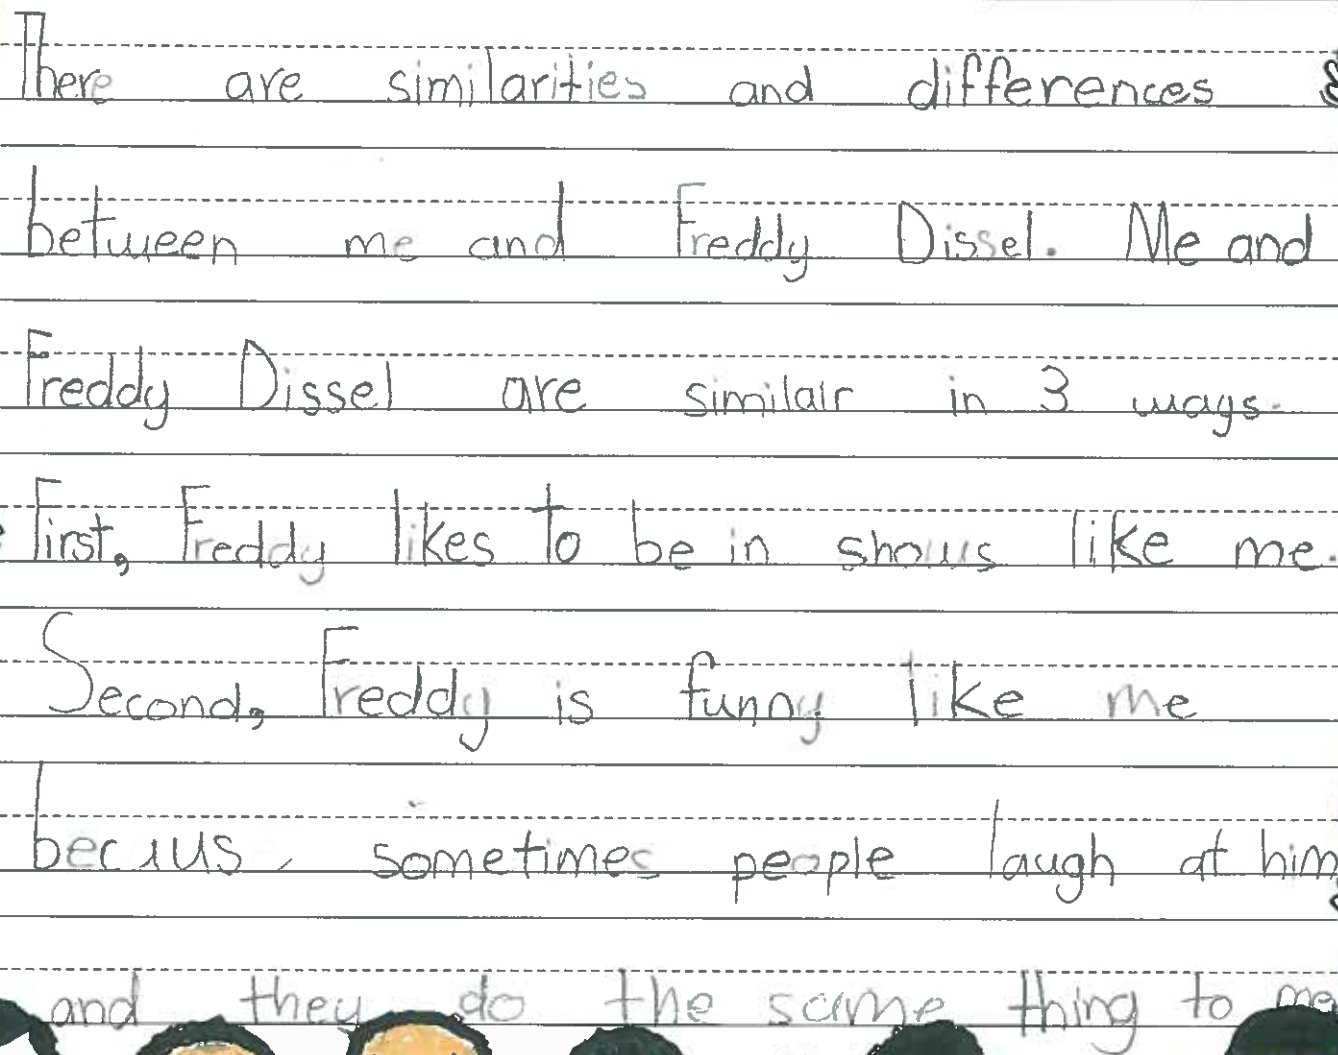 There are similarities and differences
between me and Freddy Dissel. Me and
Freddy Dissel are similair in 3 ways.
First, Freddy likes to be in shows like me.
Second, Freddy is funny like me
becaus sometimes people laugh at him
and they do the same thing to me